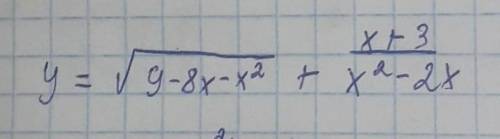 y = √(9-8x-x²) + (x+3)/(x²-2x)